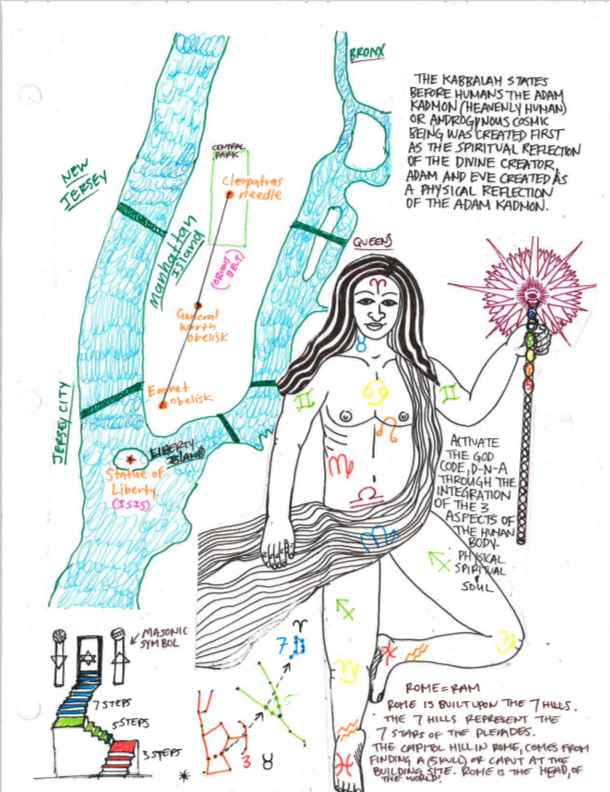 BRONX
THE KABBALAH STATES
BEFORE HUMANS THE ADAM
KADMON (HEAVENLY HUMAN)
OR ANDROGYNOUS COSMIC
BEING WAS CREATED FIRST
AS THE SPIRITUAL REFLECTION
OF THE DIVINE CREATOR,
ADAM AND EVE CREATED AS
A PHYSICAL REFLECTION
OF THE ADAM KADMON.
CENTRAL
PARK
Cleopatras
needle
NEW
JERSEY
Manhattan
Island
(ORIONS
BELT)
QUEENS
General
Worth
obelisk
Emmet
obelisk
JERSEY CITY
LIBERTY
ISLAND
Statue of
Liberty
(ISIS)
♈
♉
♊
♊
♋
♌
♍
♎
♏
♐
♐
♑
♑
♒
♒
♓
♓
ACTIVATE
THE GOD
CODE, D-N-A
THROUGH THE
INTEGRATION
OF THE 3
ASPECTS OF
THE HUMAN
BODY.
PHYSICAL
SPIRITUAL
SOUL
MASONIC
SYMBOL
7 STEPS
5 STEPS
3 STEPS
♈
7
5
3
♉
*
ROME=RAM
ROME IS BUILT UPON THE 7 HILLS.
THE 7 HILLS REPRESENT THE
7 STARS OF THE PLEIADES.
THE CAPITOL HILL IN ROME, COMES FROM
FINDING A (SKULL) OR CAPUT AT THE
BUILDING SITE. ROME IS THE HEAD, OF
THE WORLD!